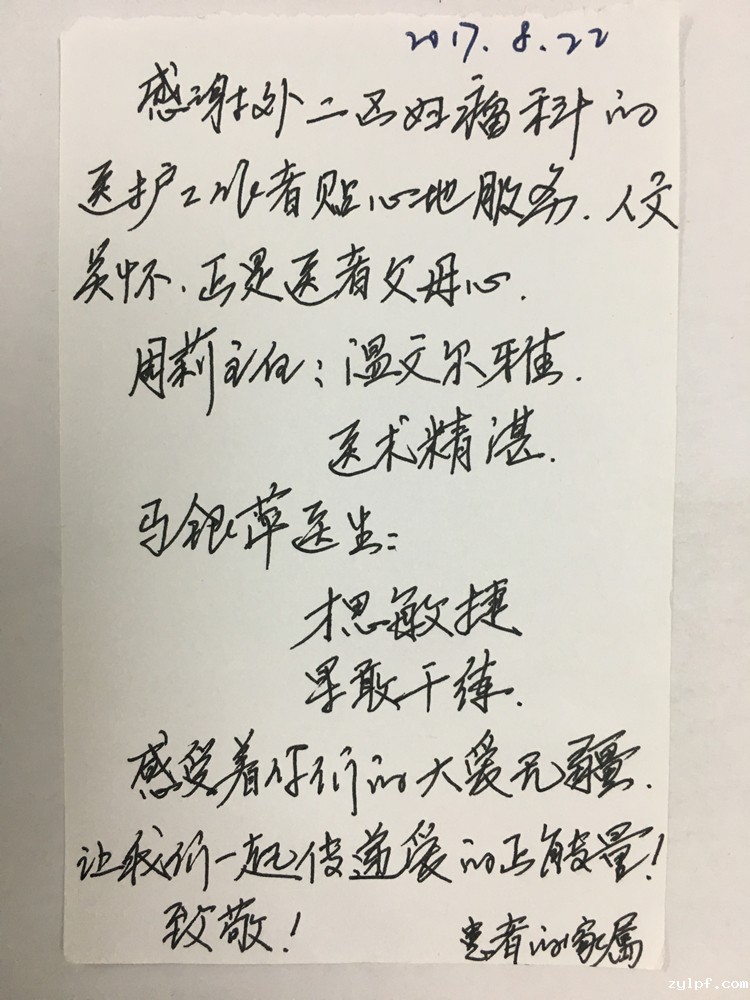 2017.8.22
感谢外二区妇瘤科的
医护工作者贴心地服务.人文
关怀.正是医者父母心.
周莉主任:温文尔雅.
医术精湛.
马银萍医生:
才思敏捷
果敢干练.
感受着你们的大爱无疆.
让我们一起传递爱的正能量!
致敬!
患者的家属
zylpf.com